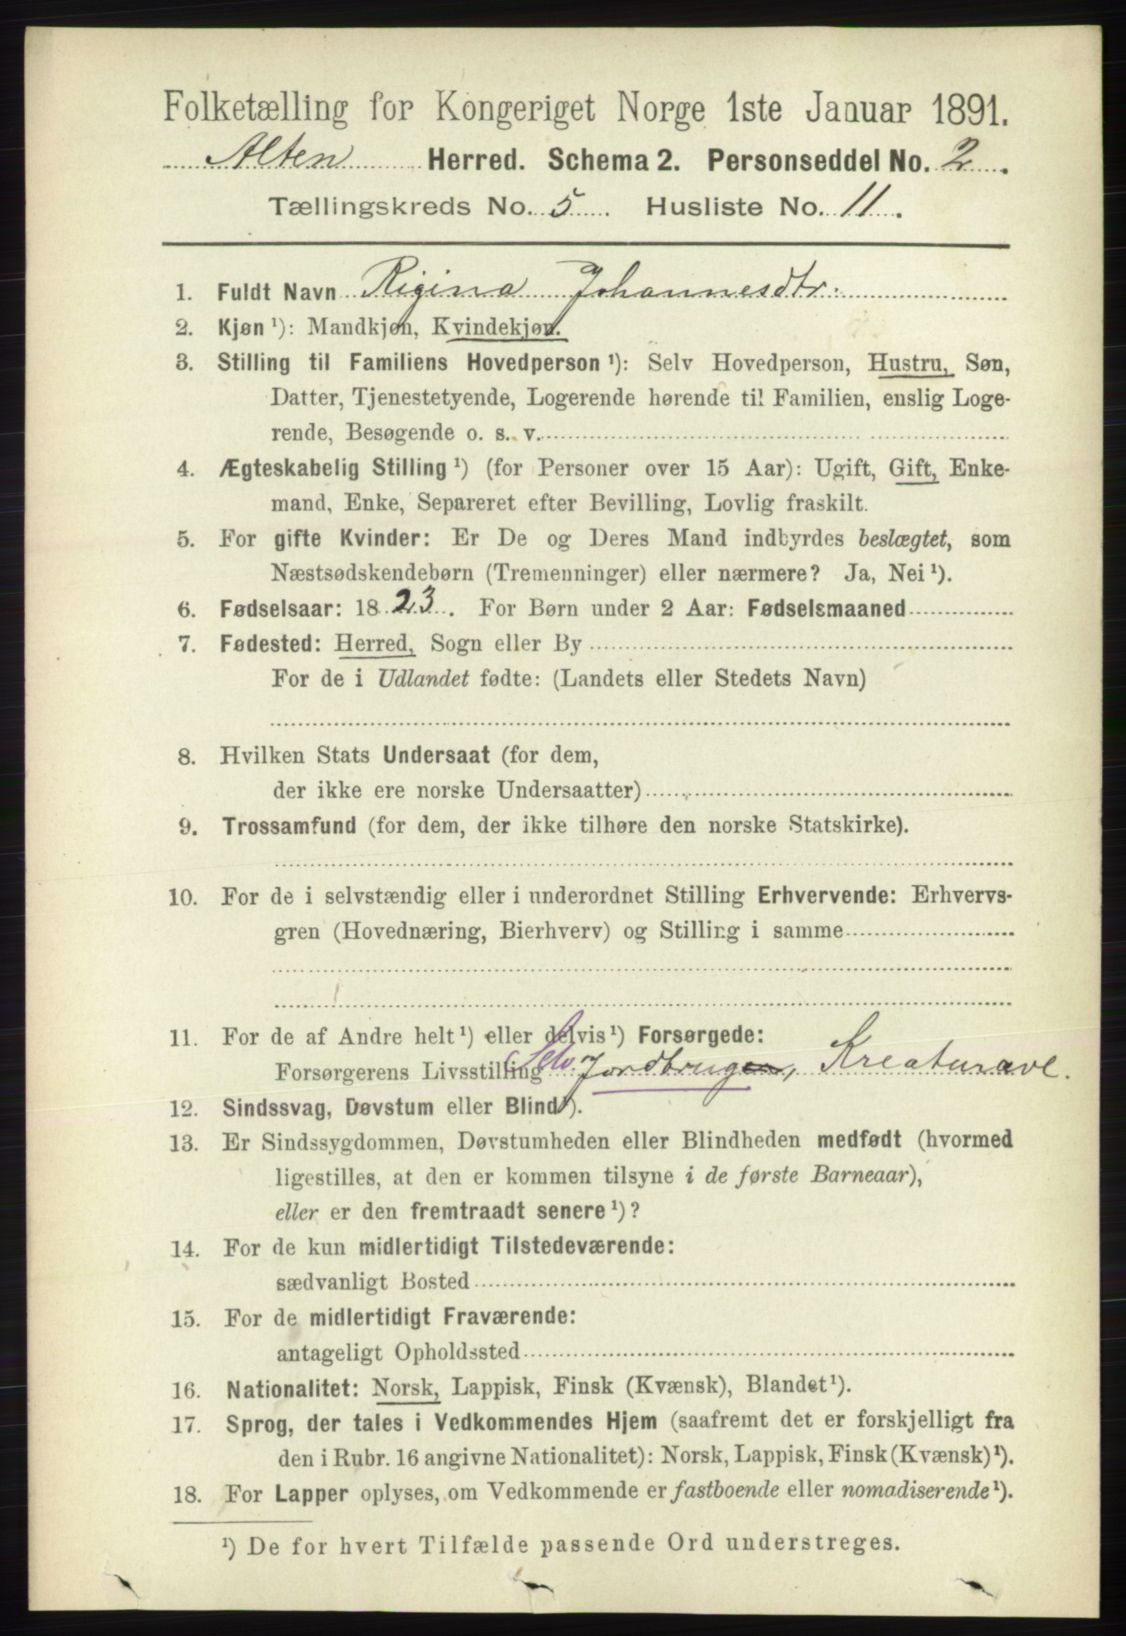 Folketælling for Kongeriget Norge 1ste Januar 1891.
Alten Herred. Schema 2. Personseddel No. 2.
Tællingskreds No. 5. Husliste No. 11.
1. Fuldt Navn Rigina Johannesdtr.
2. Kjøn ¹): Mandkjøn, Kvindekjøn.
3. Stilling til Familiens Hovedperson ¹): Selv Hovedperson, Hustru, Søn,
Datter, Tjenestetyende, Logerende hørende til Familien, enslig Loge-
rende, Besøgende o. s. v.
4. Ægteskabelig Stilling ¹) (for Personer over 15 Aar): Ugift, Gift, Enke-
mand, Enke, Separeret efter Bevilling, Lovlig fraskilt.
5. For gifte Kvinder: Er De og Deres Mand indbyrdes beslægtet, som
Næstsødskendebørn (Tremenninger) eller nærmere? Ja, Nei ¹).
6. Fødselsaar: 1823. For Børn under 2 Aar: Fødselsmaaned
7. Fødested: Herred, Sogn eller By
For de i Udlandet fødte: (Landets eller Stedets Navn)
8. Hvilken Stats Undersaat (for dem,
der ikke ere norske Undersaatter)
9. Trossamfund (for dem, der ikke tilhøre den norske Statskirke).
10. For de i selvstændig eller i underordnet Stilling Erhvervende: Erhvervs-
gren (Hovednæring, Bierhverv) og Stilling i samme
11. For de af Andre helt ¹) eller delvis ¹) Forsørgede:
Forsørgerens Livsstilling Selv. Jordbrugen, Kreaturavl.
12. Sindssvag, Døvstum eller Blind ¹).
13. Er Sindssygdommen, Døvstumheden eller Blindheden medfødt (hvormed
ligestilles, at den er kommen tilsyne i de første Barneaar),
eller er den fremtraadt senere ¹)?
14. For de kun midlertidigt Tilstedeværende:
sædvanligt Bosted
15. For de midlertidigt Fraværende:
antageligt Opholdssted
16. Nationalitet: Norsk, Lappisk, Finsk (Kvænsk), Blandet ¹).
17. Sprog, der tales i Vedkommendes Hjem (saafremt det er forskjelligt fra
den i Rubr. 16 angivne Nationalitet): Norsk, Lappisk, Finsk (Kvænsk) ¹).
18. For Lapper oplyses, om Vedkommende er fastboende eller nomadiserende ¹).
¹) De for hvert Tilfælde passende Ord understreges.